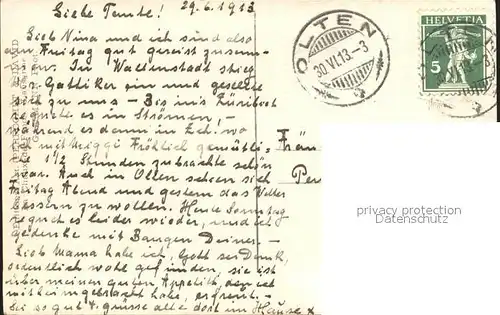 Liebe Tante! 29.6.1913
Lieb Nina und ich sind also
am Freitag gut gereist zusam-
men. In Wallenstadt stieg
Gattiker ein und gesellte
sich zu uns - Bis in's Züribiet
regnete es in Strömen, -
während es dann in Zch. wo
ich mit Miggi Fröhlich gemütli-
1 1/2 Stunden zubrachte schön
war. Auch in Olten schien sich
Freitag Abend und gestern das Wetter
bessern zu wollen. Heute Sonntag
regnet es leider wieder, und ich
gedenke mit Bangen Deiner -
Lieb Mama habe ich, Gott sei Dank,
ordentlich wohl gefunden, sie ist
über meinen guten Appetitt, den ich
mit heimgebracht habe, erfreut. -
sei so gut & grüsse alle dort im Hause &
Frän
Per
OLTEN
30.VI.13.-3
HELVETIA
5
privacy protection
oldthing.de